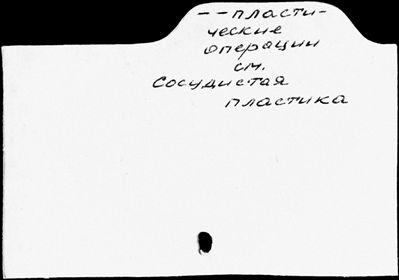 --пласти-
ческие
операции
см.
Сосудистая
пластика